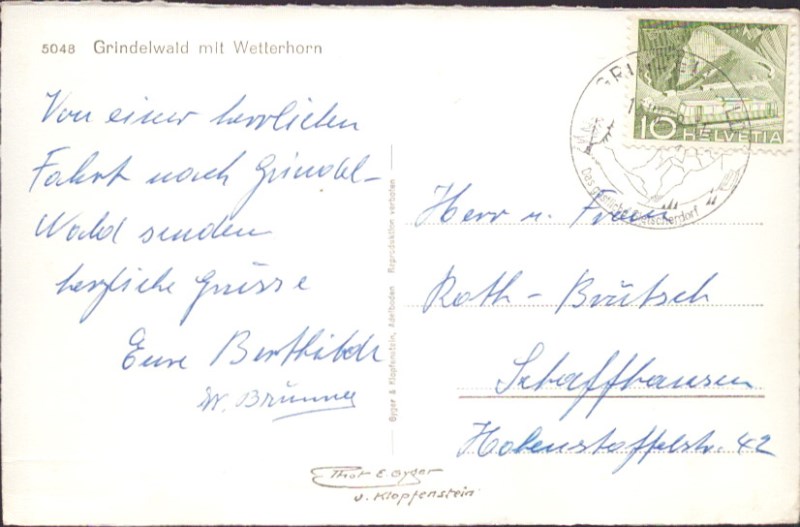 5048 Grindelwald mit Wetterhorn
Von einer herrlichen
Fahrt nach Grindel-
Wald senden
herzliche Grüsse
Eure Berthilde
W. Brunner
Gyger & Klopfenstein, Adelboden Reproduktion verboten
Phot E. Gyger
u. Klopfenstein
10 HELVETIA
Das Gletscherdorf
Herr u. Frau
Roth - Brütsch
Schaffhausen
Hohenstoffelstr. 42